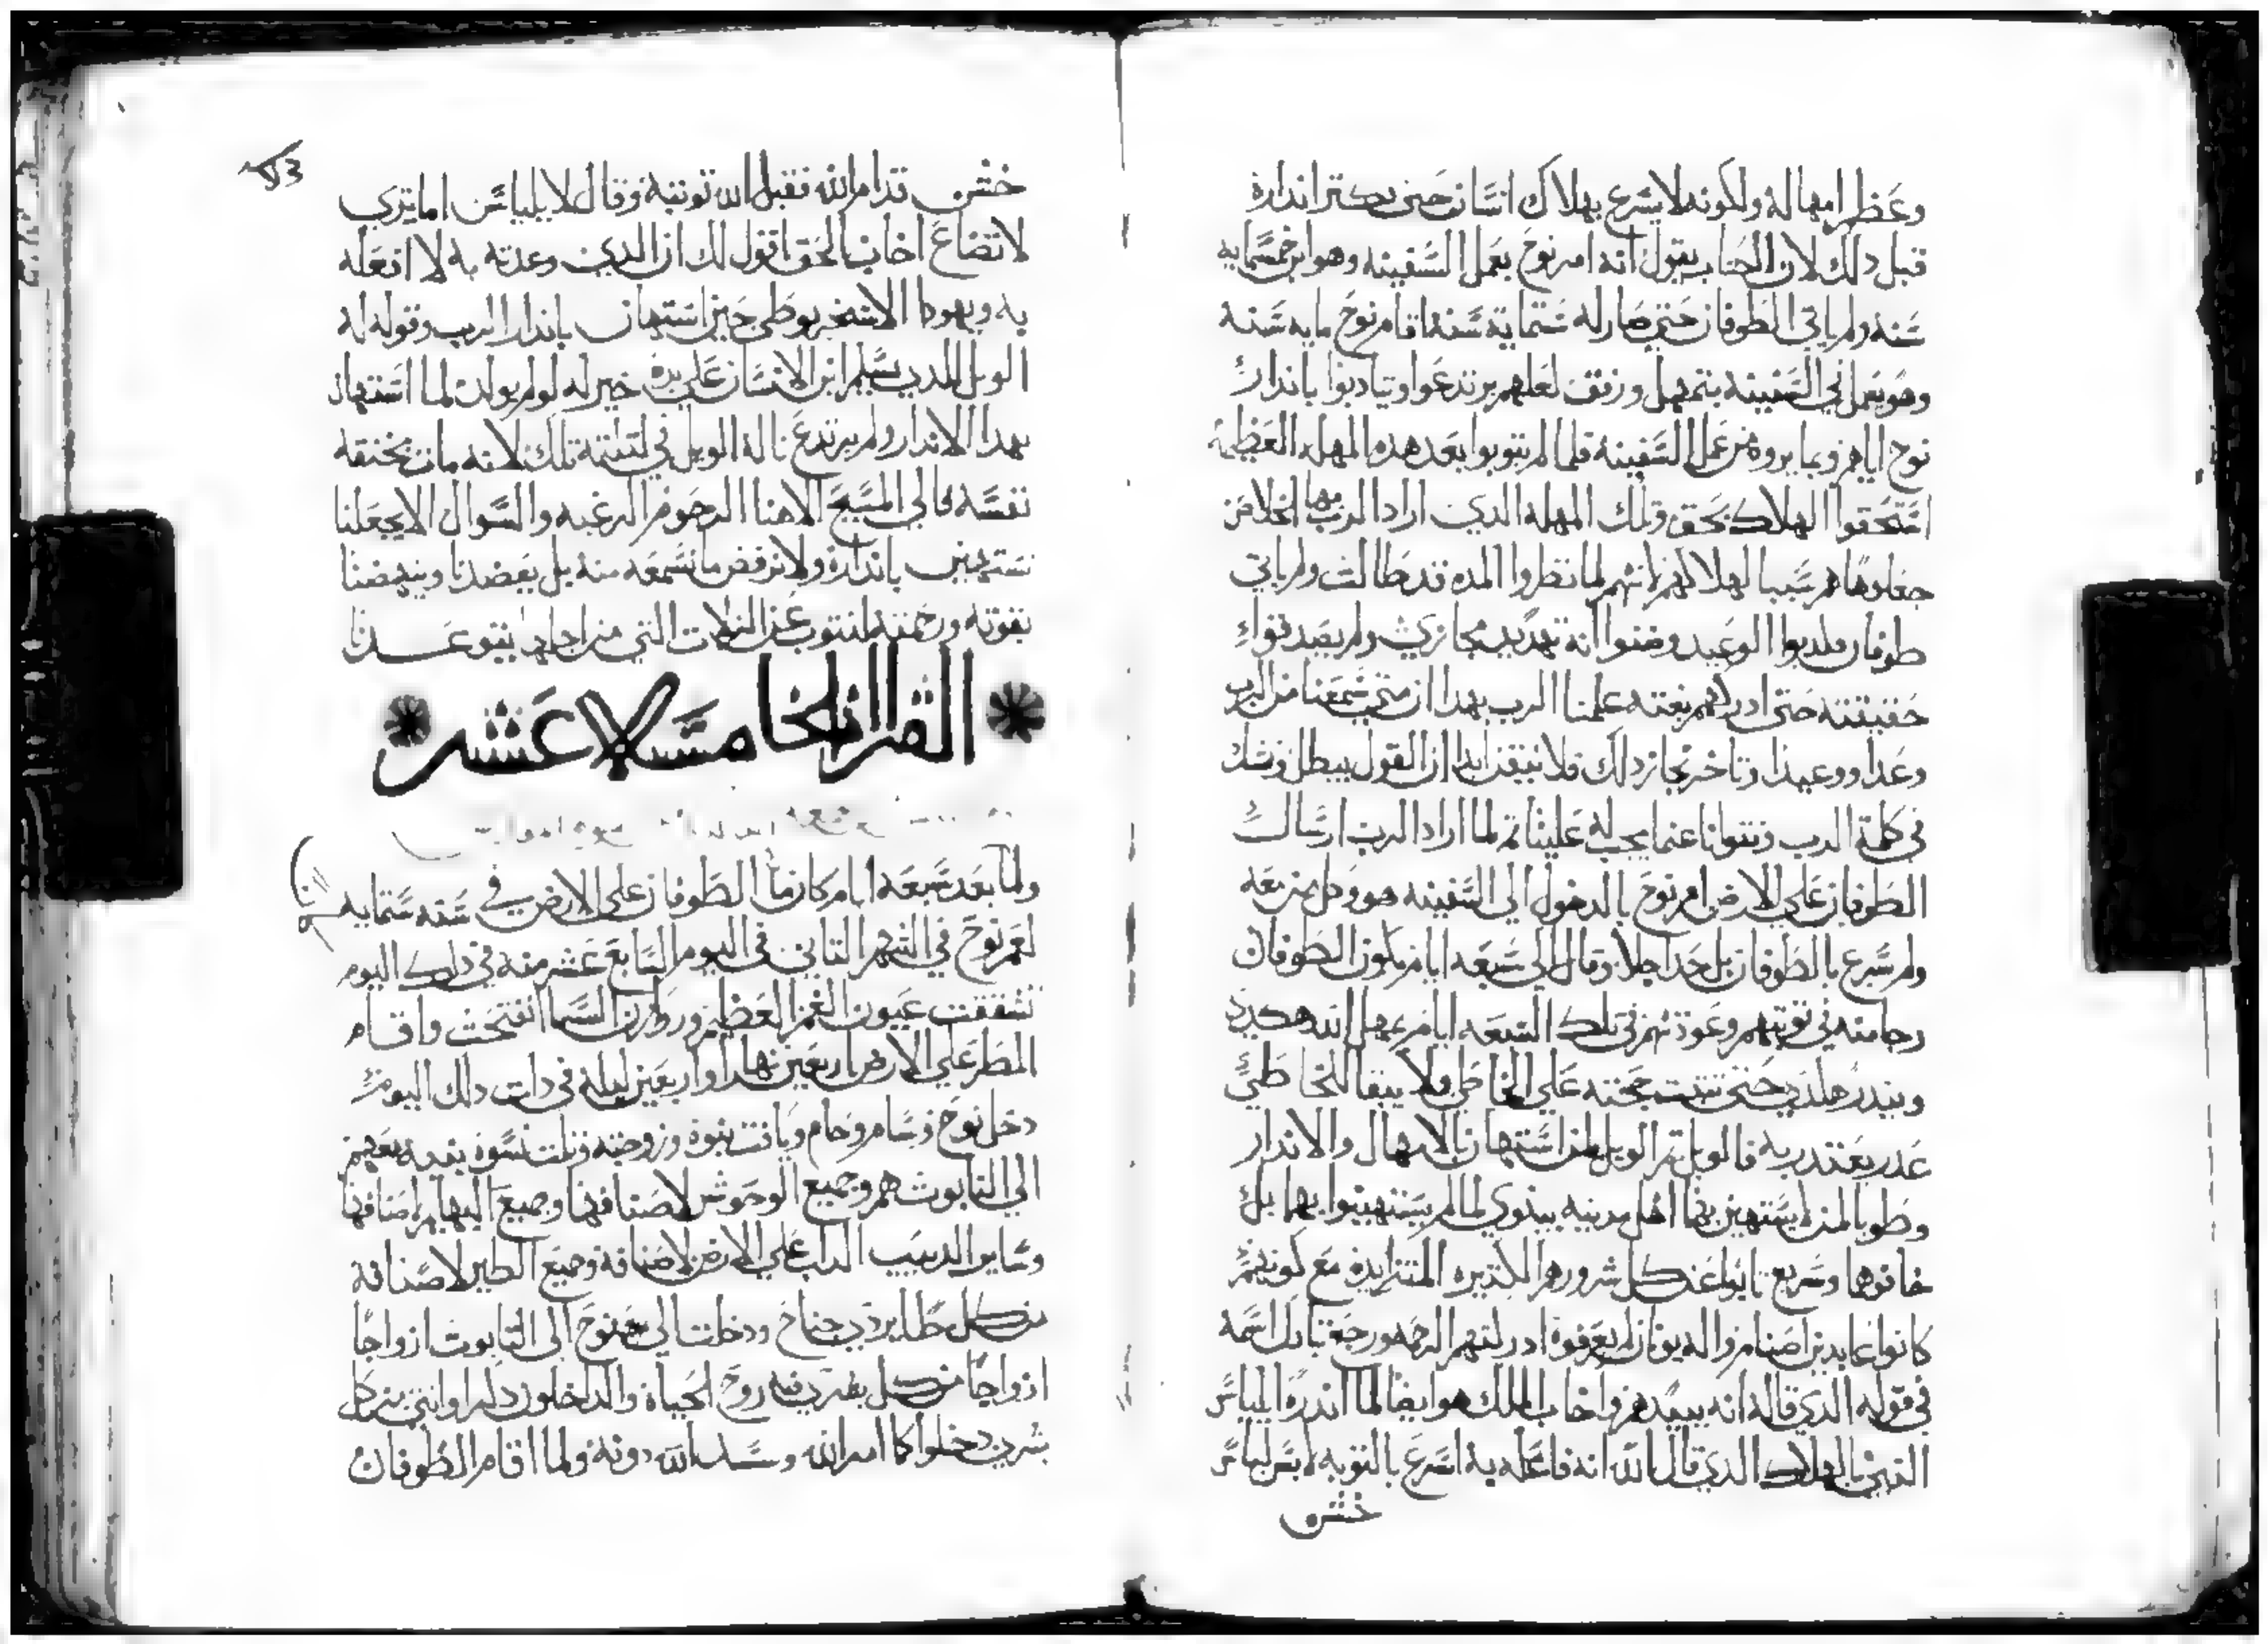 وعظم امهاله ولكونه لا يسرع بهلاك انسان حتى يكتر انداره
قبل دلك لان الكتاب يقول انه امر نوح بعمل السفينه وهو ابن خمسمايه
سنه ولم ياتي الطوفان حتى صار له ستمايه سنه اقام نوح مايه سنه
وهو يعمل في السفينه بتمهل ورفق لعلهم يرتدعوا ويتادبوا باندار
نوح اياهم وبما يروه من عمل السفينه فلما لم يتوبوا بعد هده المهله العظيمه
استحقوا الهلاك بحق وتلك المهله الدي اراد الرب بها الخلاص
جعلوها هم سببا لهلاكهم لانهم لما نظروا المده قد طالت ولم ياتي
طوفان كدبوا الوعيد وضنوا انه تهديد مجازي ولم يصدقوا
حقيقته حتى ادركهم بغته علمنا الرب بهدا ان متى سمعنا من الرب
وعدا ووعيدا وتاخر نجاز دلك فلا نتيقن ابدا ان القول يبطل ونشك
في كلمة الرب ونتوانا عما يجب له علينا تم لما اراد الرب ارسال
الطوفان على الارض امر نوح بالدخول الى السفينه هو وكل من معه
ولم يسرع بالطوفان بل حد اجلا وقال الى سبعه ايام يكون الطوفان
رجا منه في توبتهم وعودتهم في تلك السبعه ايام يمهل الله هكدي
ويندر هكدي حتى تتبت حجته على الخاطي ولا يبقا للخاطي
عدر يعتدر به فالويل تم الويل لمن استهان بالامهال والاندار
وطوبا لمن لا يستهين بهما اهل مدينه نينوي لما لم يستهينوا بهما بل
خافوها وسريع تابوا عن كل شرورهم الكتيره المتزايده مع كونهم
كانوا عابدين اصنام والديونان لم يعرفوه ادركتهم الرحمه ورجع تبارك اسمه
في قوله الدي قاله انه يبيدهم واخاب الملك هو ايضا لما اندره ايليا
النبي بالهلاك الدي قال الله انه فاعله به اسرع بالتوبه لابس لباس
خشن
خشن قدام الله فقبل الله توبته وقال لايليا اما ترى
لاتضاع اخاب الحق اقول لك ان الدي وعدته به لا افعله
به ويهودا الاسخريوطي حين استهان باندار الرب وقوله له
الويل للدي يسلم ابن الانسان على يده خير له لو لم يولد لما استهان
بهدا الاندار ولم يرتدع ناله الويل في لتلك لانه مات بخنقه
نفسه فالى المسيح الاهنا الرحوم الرغبه والسوال الا يجعلنا
نستهين بانداره ولا نرفض ما نسمعه منه بل يعضدنا وينهضنا
بقوته ورحمته لنتوب عن الزلات التي من اجلها يتوعدنا
القراه الخامسه عشر
ولما بعد سبعه ايام كان ما الطوفان على الارض في سنه ستمايه
لعمر نوح في الشهر التاني في اليوم السابع عشر منه في دلك اليوم
تشققت عيون الغمر العظيم وروازن السما انفتحت واقام
المطر على الارض اربعين نهارا واربعين ليله في دات دلك اليوم
دخل نوح وسام وحام ويافت بنوه وزوجته وتلت نسوة بنيه معهم
الى التابوت هم وجميع الوحوش لاصنافها وجميع البهايم لاصنافها
وساير الدبيب الداب على الارض لاصنافه وجميع الطير لاصنافه
من كل طاير دي جناح ودخلت الى نوح الى التابوت ازواجا
ازواجا من كل بشري فيه روح الحياة والداخلون دكرا وانتى من كل
بشري دخلوا كما امر الله وسد الله دونه ولما اقام الطوفان